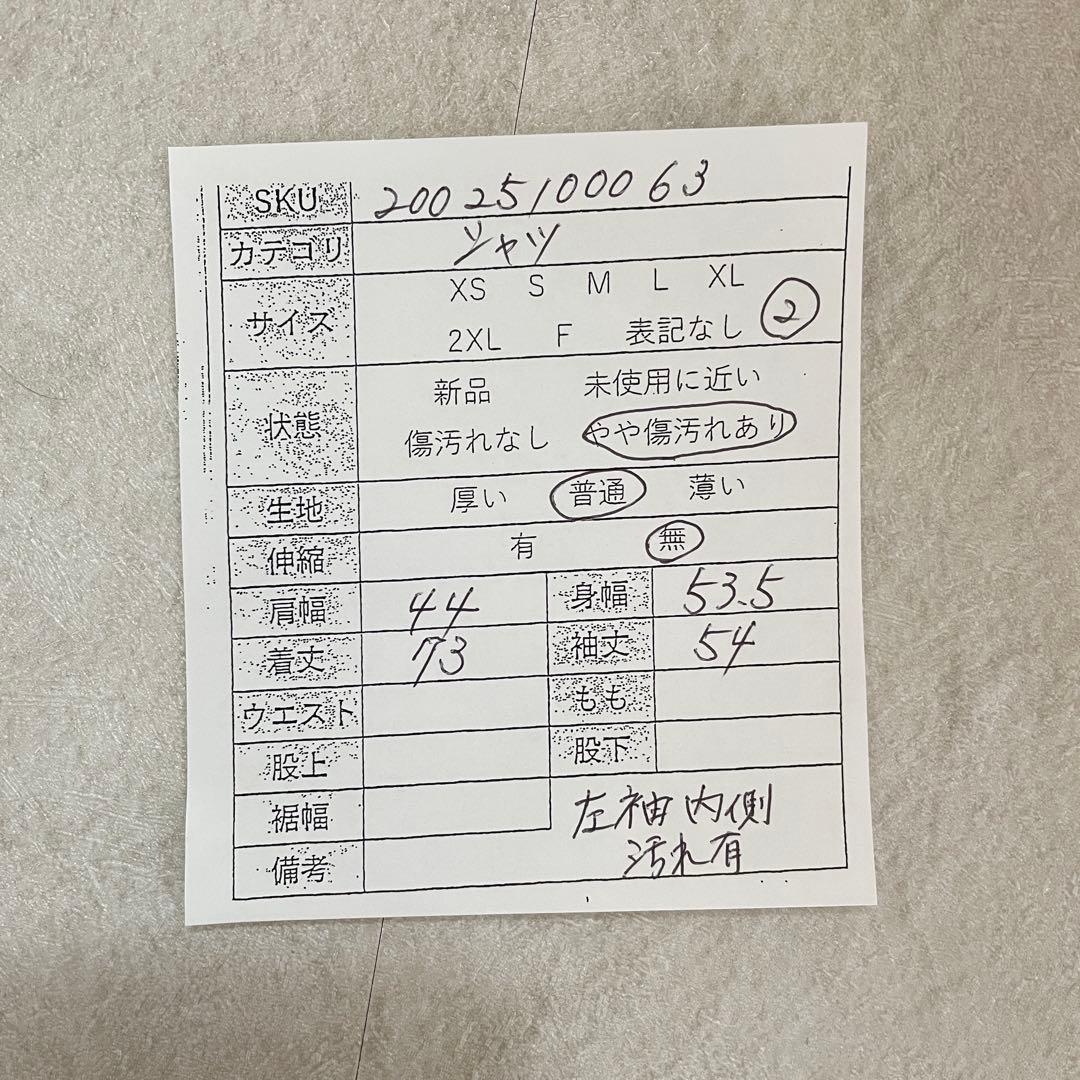 SKU 200 25100063
カテゴリ シャツ
サイズ XS S M L XL
2XL F 表記なし 2
状態 新品 未使用に近い
傷汚れなし やや傷汚れあり
生地 厚い 普通 薄い
伸縮 有 無
肩幅 44 身幅 53.5
着丈 73 袖丈 54
ウエスト もも
股上 股下
裾幅
備考 左袖内側
汚れ有